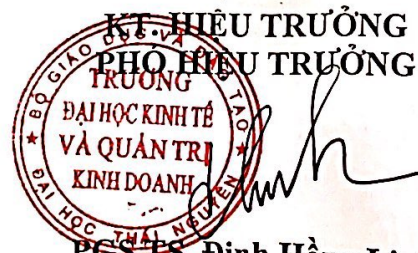 KT. HIỆU TRƯỞNG
PHÓ HIỆU TRƯỞNG
BỘ GIÁO DỤC VÀ ĐÀO TẠO
TRƯỜNG
ĐẠI HỌC KINH TẾ
VÀ QUẢN TRỊ
KINH DOANH
ĐẠI HỌC THÁI NGUYÊN
PGS.TS. Đinh Hồng